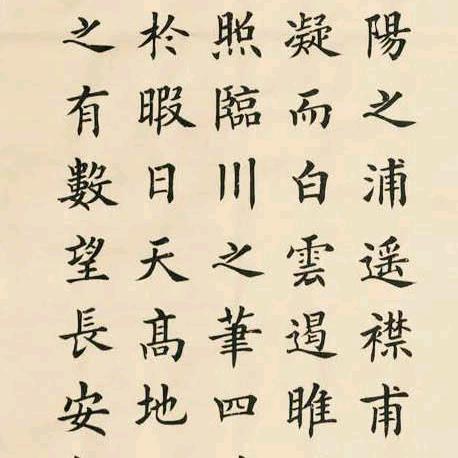 陽之浦遥襟甫
凝而白雲遏睢
照臨川之筆四
扵暇日天髙地
之有數望長安